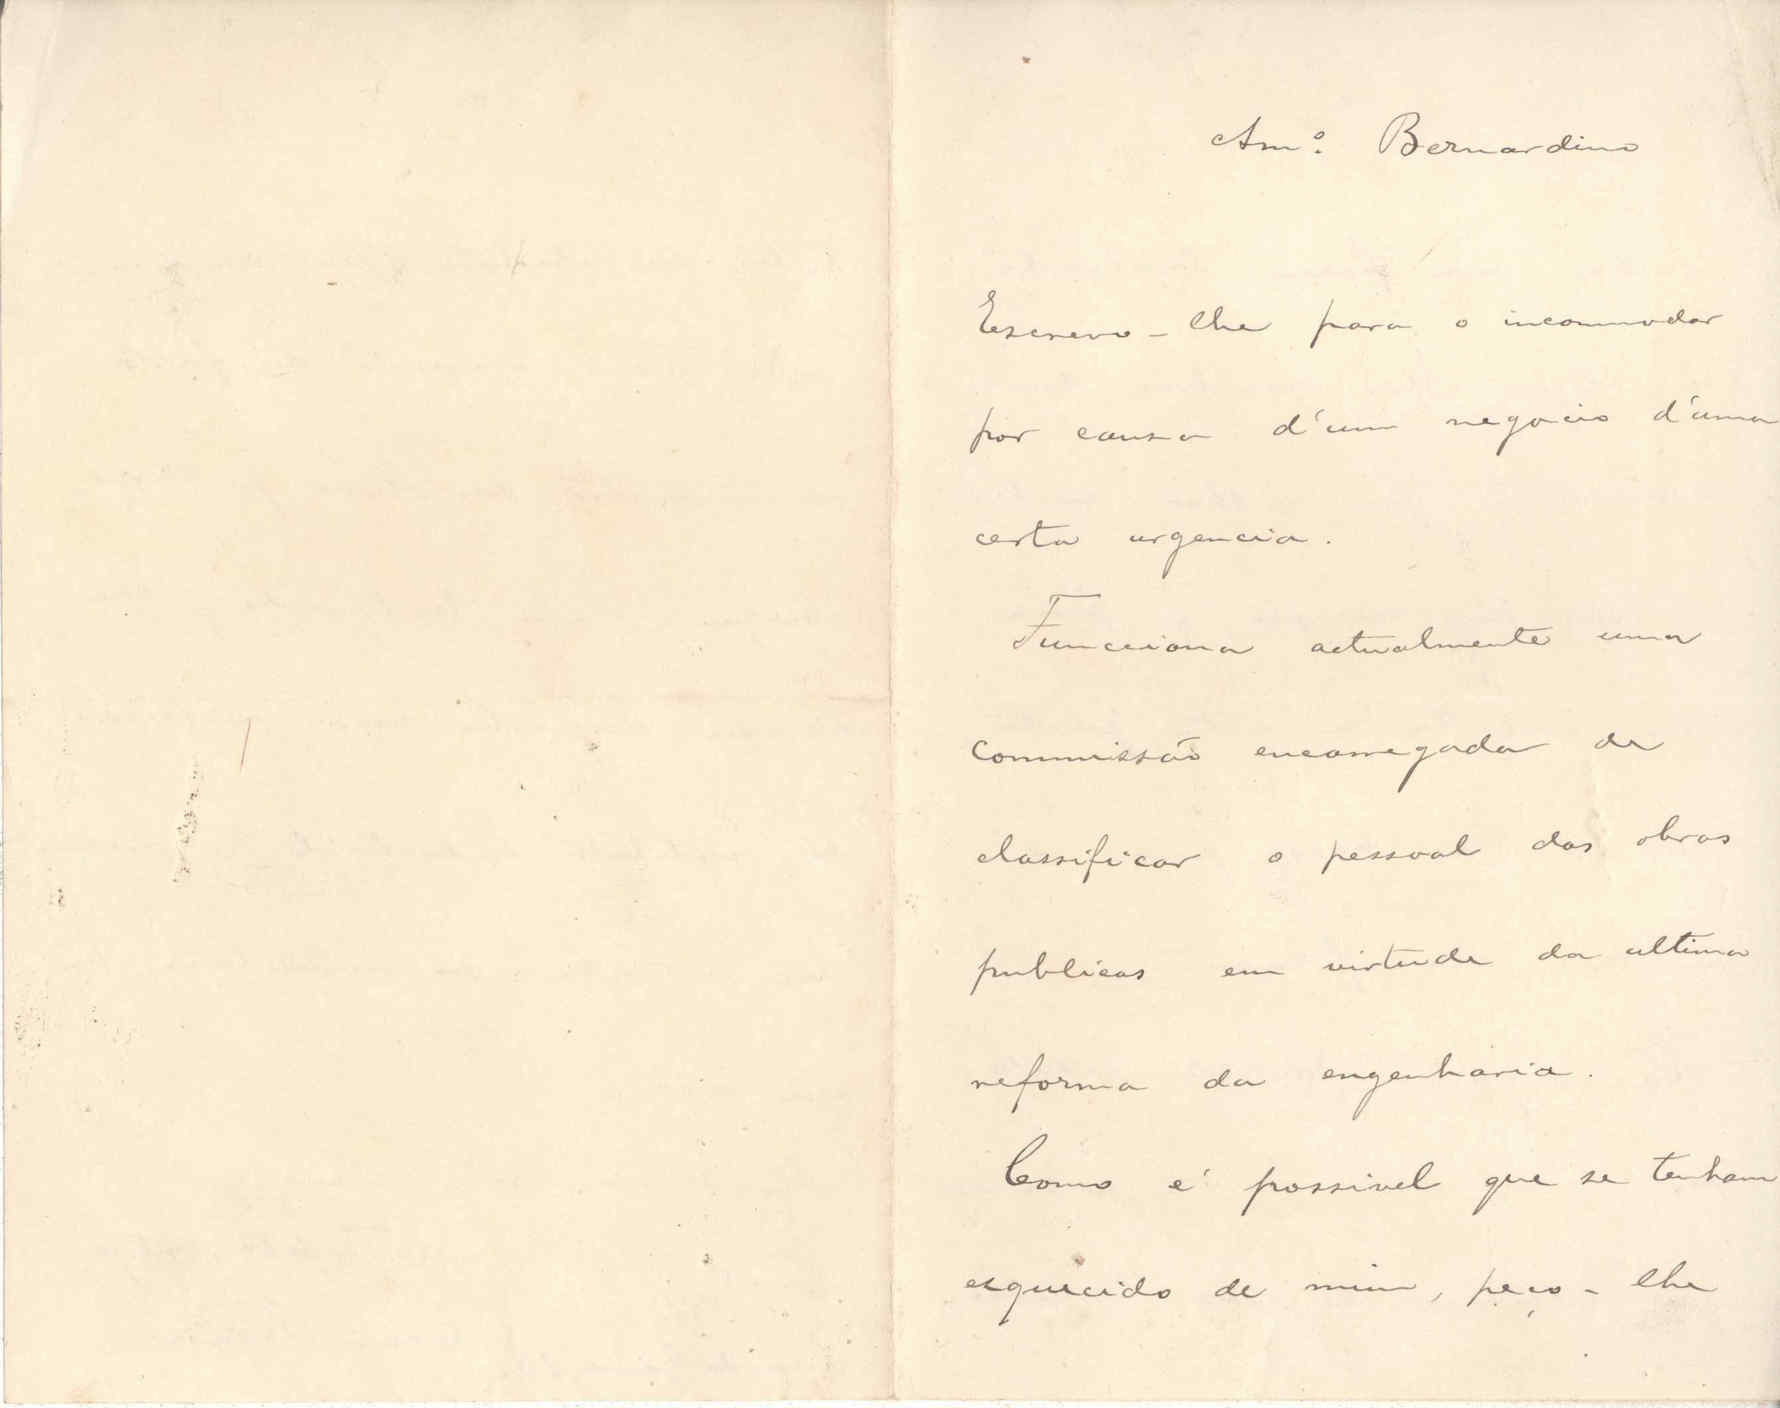 Am.º Bernardino
Escrevo-lhe para o incommodar
por causa d'um negocio d'uma
certa urgencia.
Funcciona actualmente uma
commissão encarregada de
classificar o pessoal das obras
publicas em virtude da ultima
reforma da engenharia.
Como é possivel que se tenham
esquecido de mim, peço-lhe